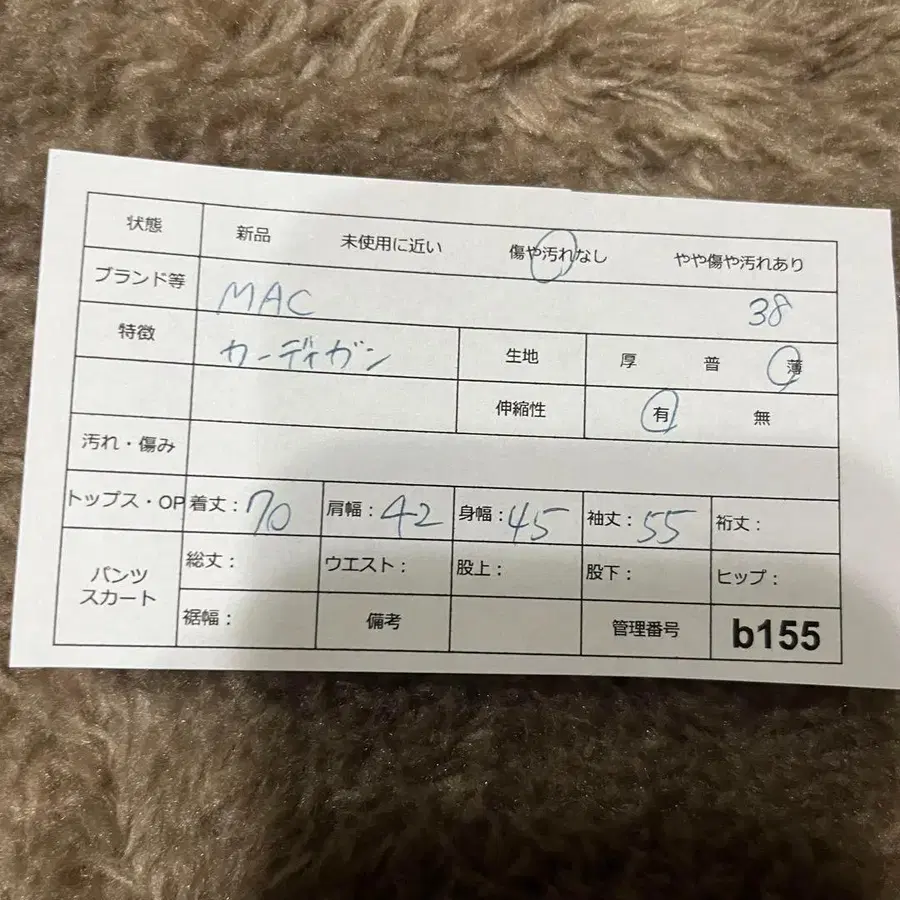 状態 新品 未使用に近い 傷や汚れなし やや傷や汚れあり
ブランド等 MAC 38
特徴 カーディガン 生地 厚 普 薄
伸縮性 有 無
汚れ・傷み
トップス・OP 着丈： 70 肩幅： 42 身幅： 45 袖丈： 55 裄丈：
パンツ スカート 総丈： ウエスト： 股上： 股下： ヒップ：
裾幅： 備考 管理番号 b155